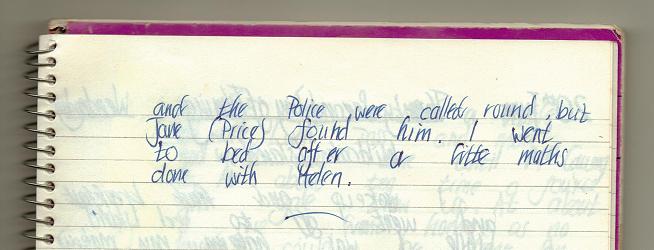 and the Police were called round, but
Jane (Price) found him. I went
to bed after a little maths
done with Helen.